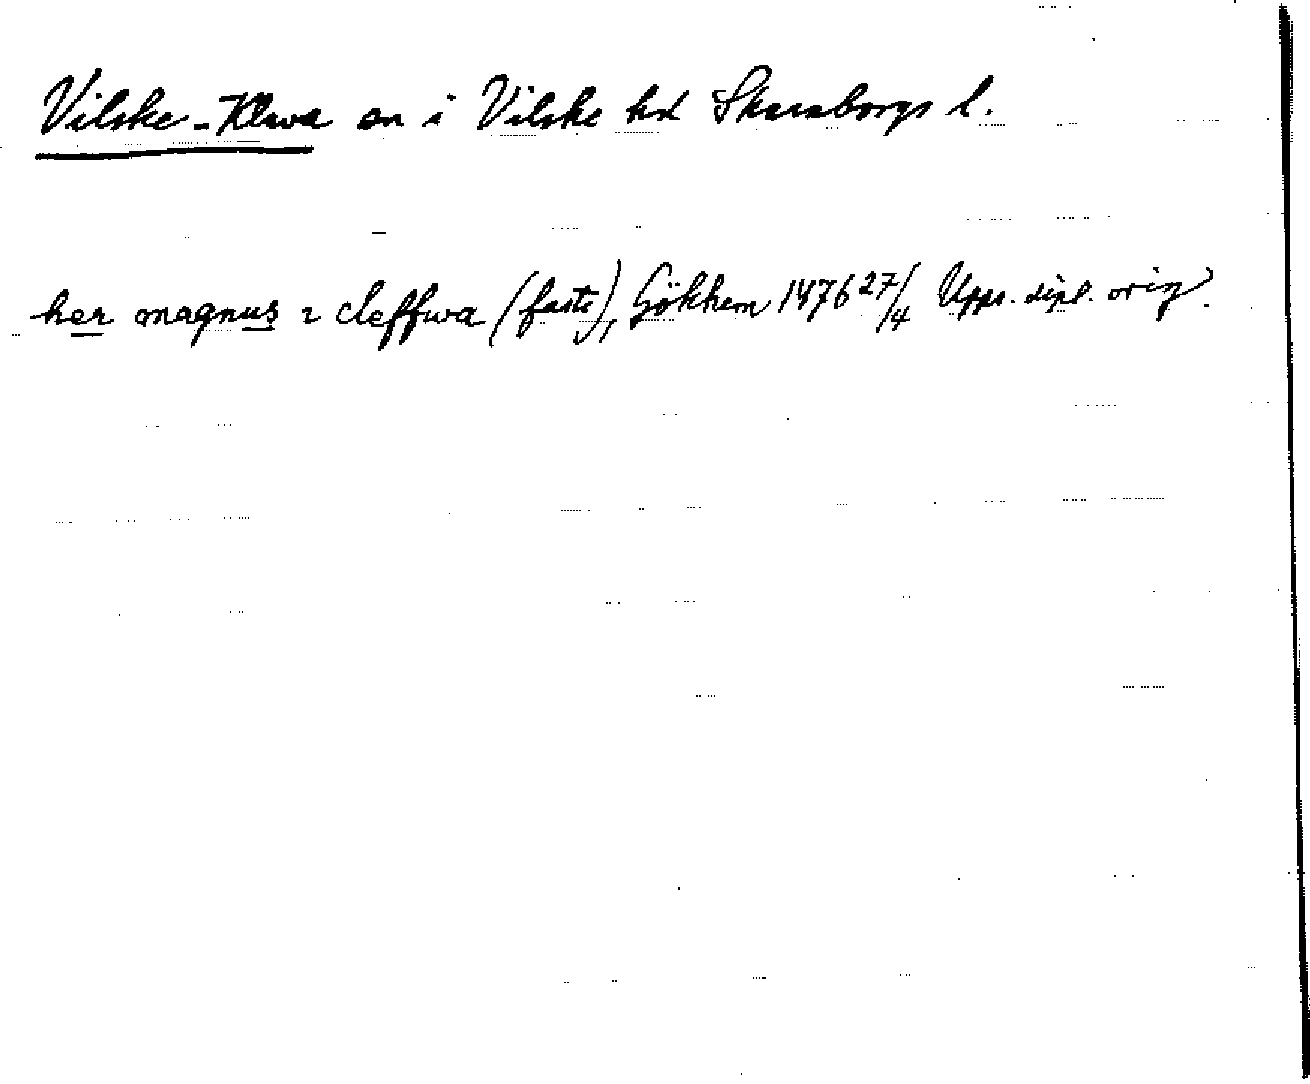 Vilske-Kleva sn i Vilske hd Skaraborgs l.
her magnus i cleffwa (faste), Gökhem 1476 27/4 Upps. dipl. orig.